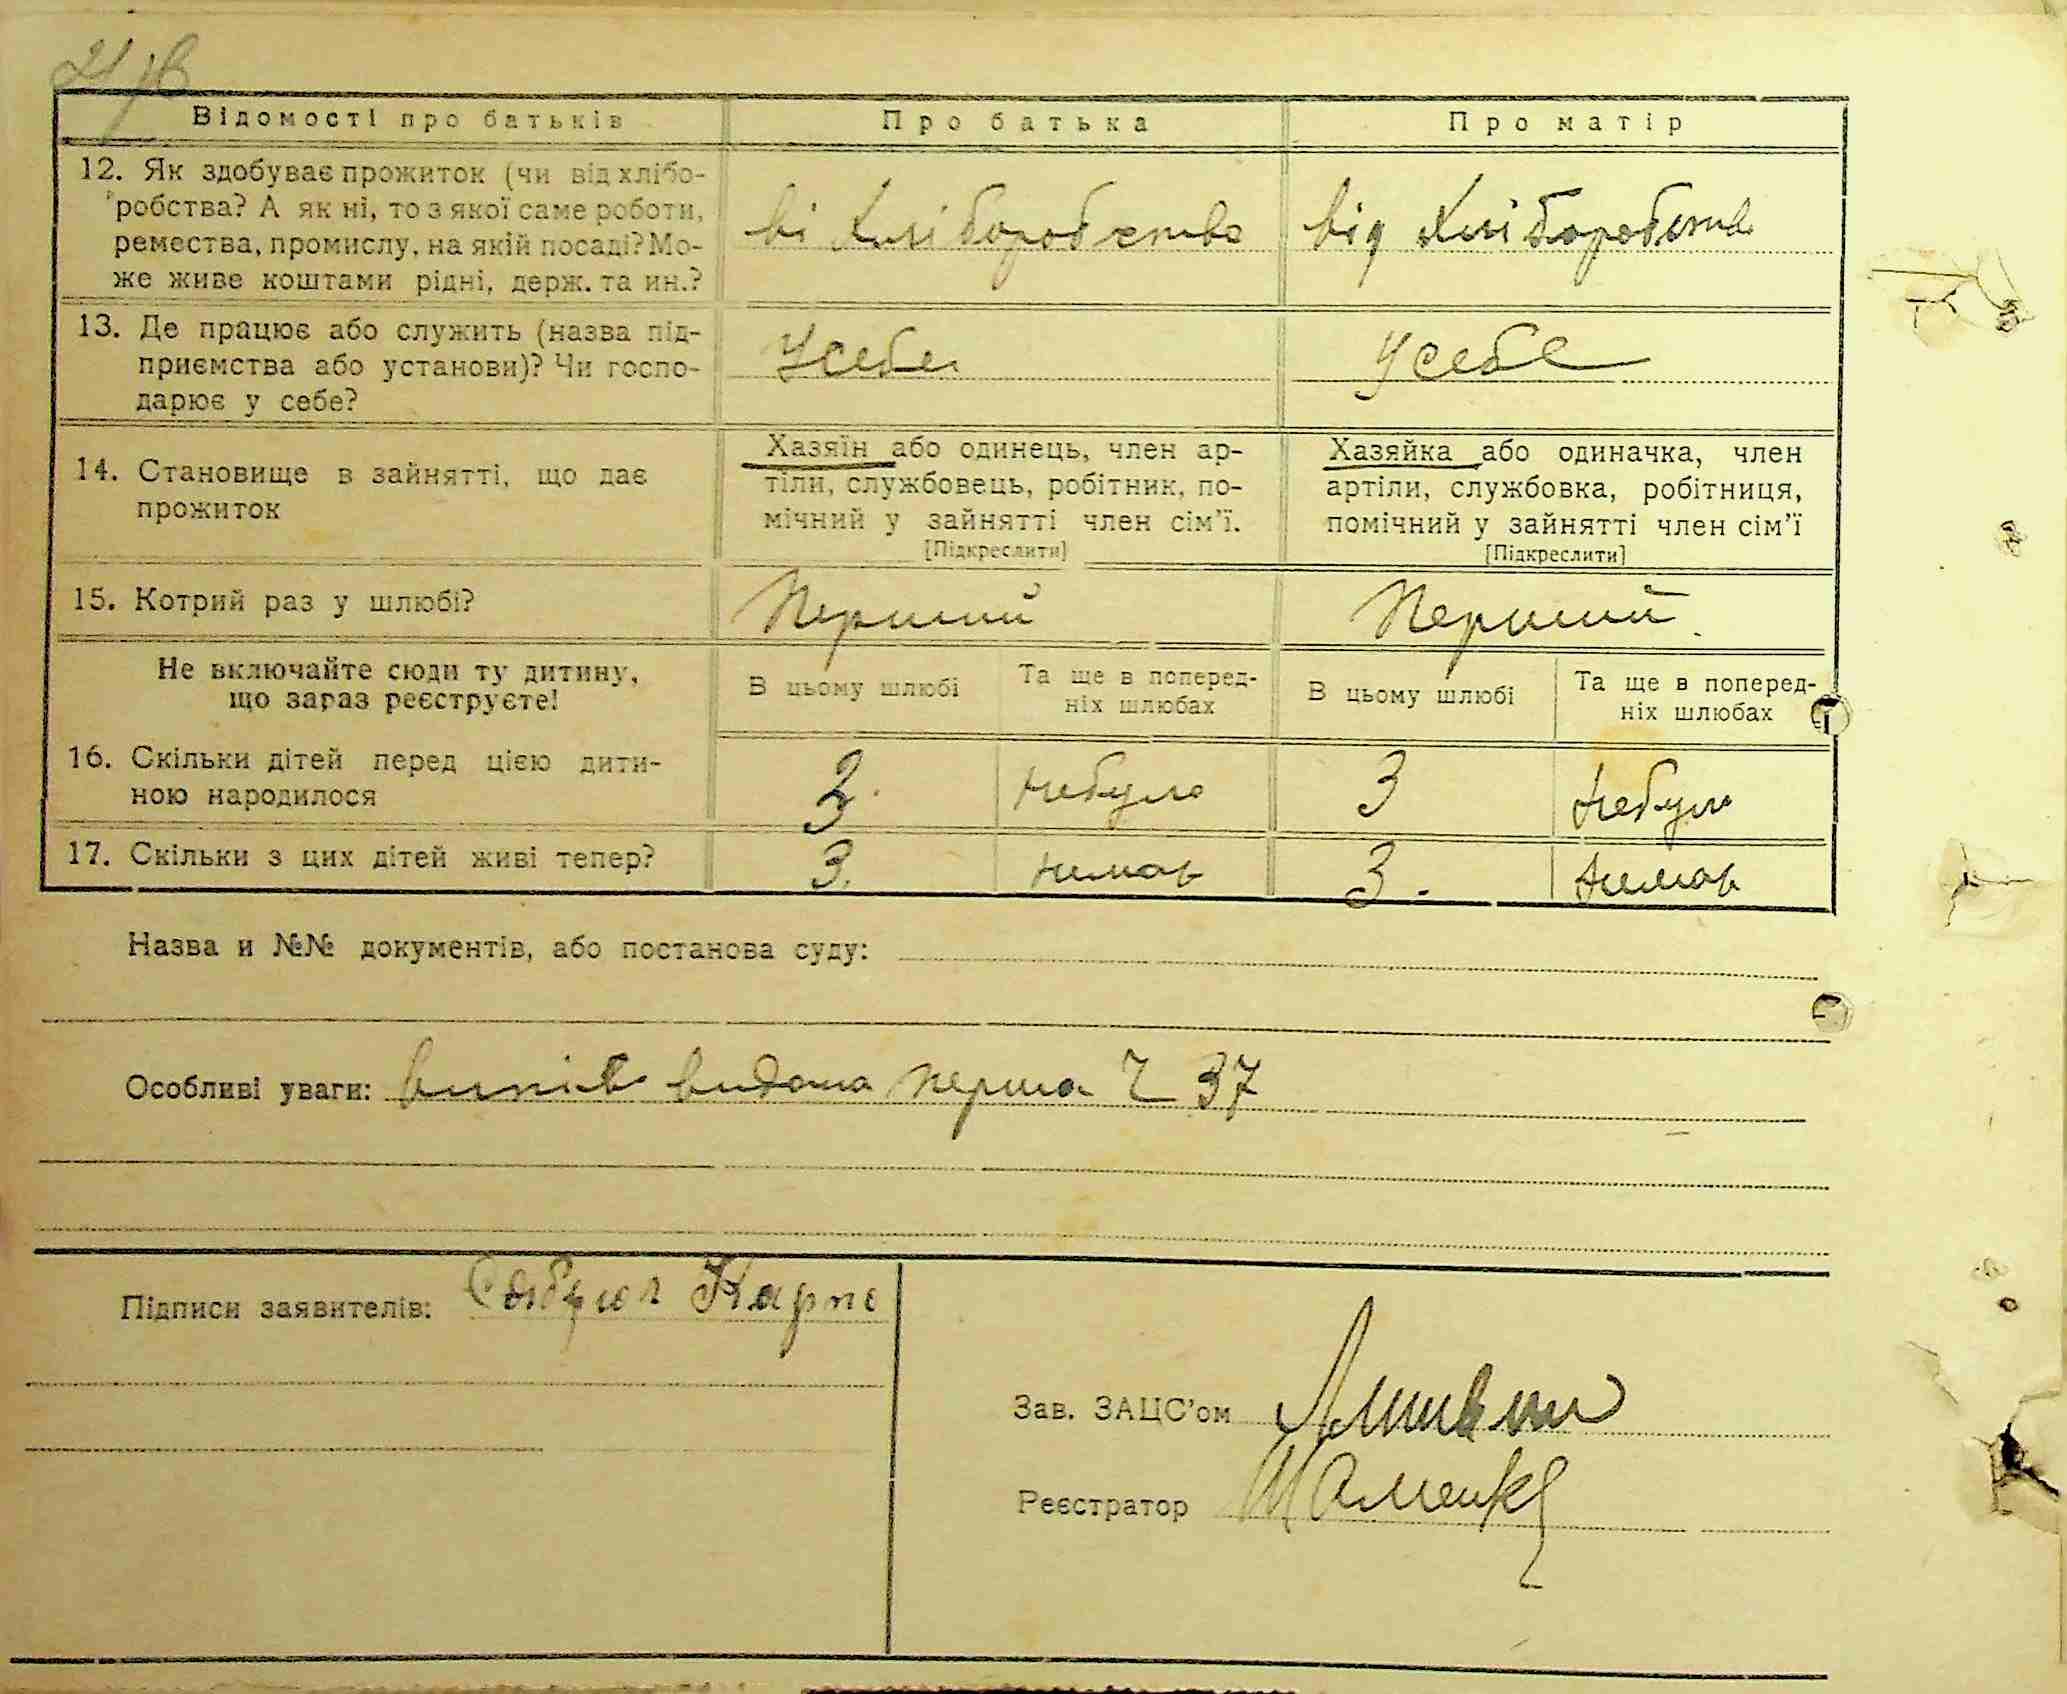 Відомості про батьків
Про батька
Про матір
12. Як здобуває прожиток (чи від хлібо-
робства? А як ні, то з якої саме роботи,
ремества, промислу, на якій посаді? Мо-
же живе коштами рідні, держ. та ин.?
ві хліборобства
від хліборобства
13. Де працює або служить (назва під-
приємства або установи)? Чи госпо-
дарює у себе?
У себе
У себе
14. Становище в зайнятті, що дає
прожиток
Хазяїн або одинець, член ар-
тіли, службовець, робітник, по-
мічний у зайнятті член сім'ї.
[Підкреслити]
Хазяйка або одиначка, член
артіли, службовка, робітниця,
помічний у зайнятті член сім'ї
[Підкреслити]
15. Котрий раз у шлюбі?
Перший
Перший
Не включайте сюди ту дитину,
що зараз реєструєте!
В цьому шлюбі
Та ще в поперед-
ніх шлюбах
В цьому шлюбі
Та ще в поперед-
ніх шлюбах
16. Скільки дітей перед цією дити-
ною народилося
3
небуло
3
небуло
17. Скільки з цих дітей живі тепер?
3.
нимає
3.
нимає
Назва и №№ документів, або постанова суду:
Особливі уваги: випись видана перша Ч 37
Підписи заявителів: Карпо
Зав. ЗАЦС'ом
Реєстратор